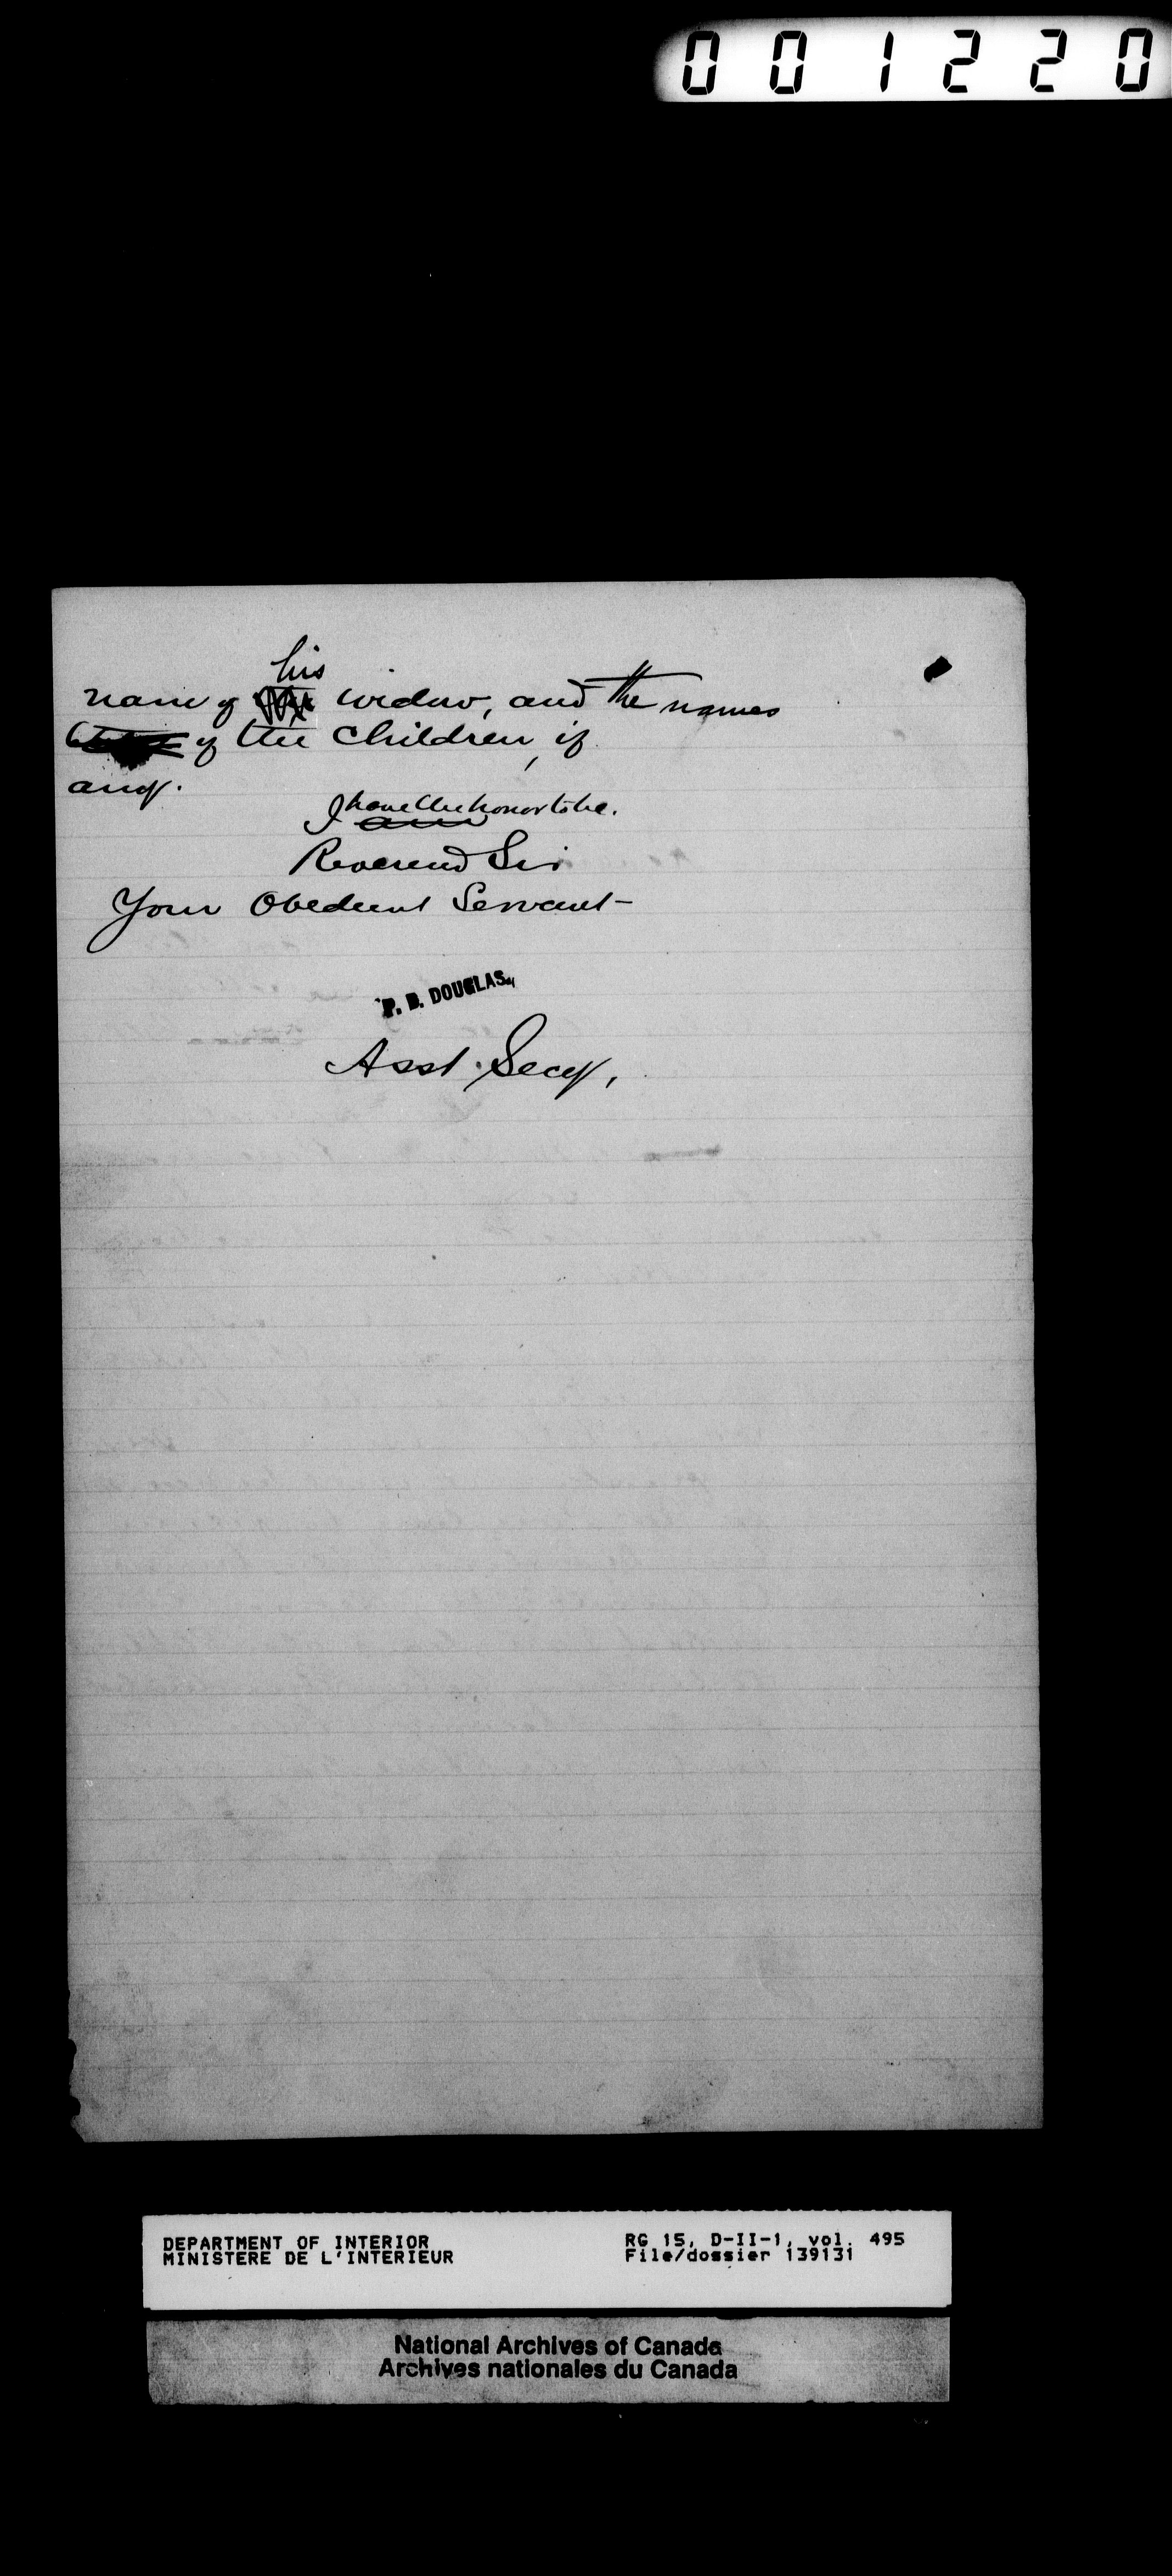 001220
his
name of the widow, and the names
of the children, if
any.
I have the honor to be.
am
Reverend Sir
Your Obedient Servant
P. B. DOUGLAS.
Asst. Secy,
DEPARTMENT OF INTERIOR
MINISTERE DE L'INTERIEUR
RG 15, D-II-1, vol. 495
File/dossier 139131
National Archives of Canada
Archives nationales du Canada